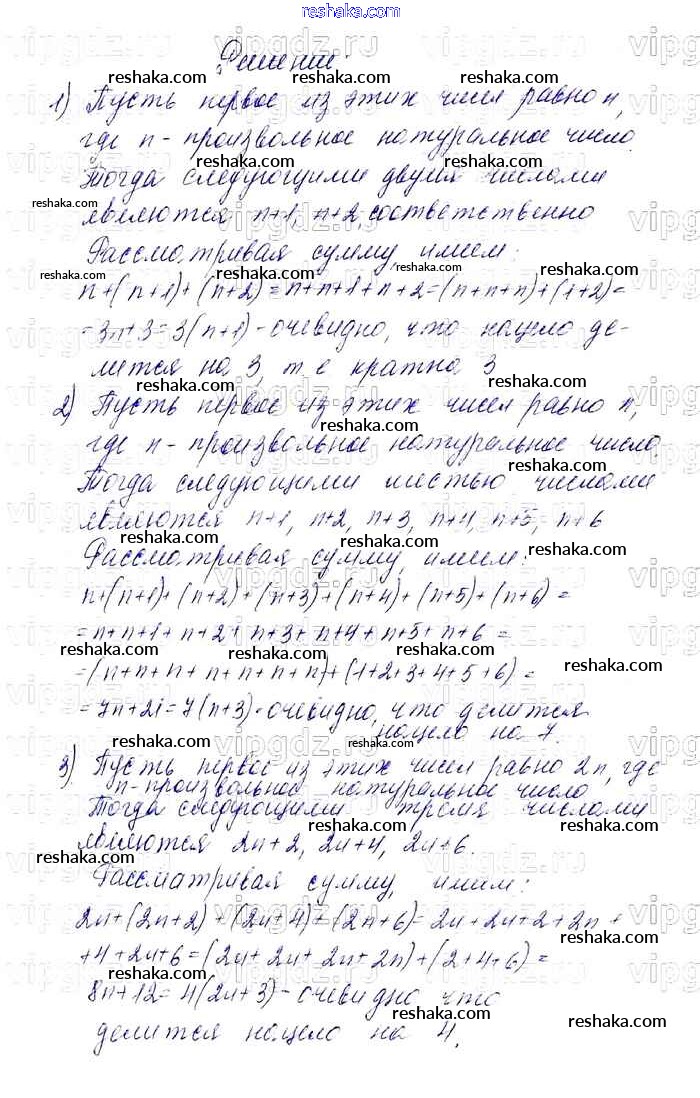 reshaka.com
Решение:
1) Пусть первое из этих чисел равно n,
где n - произвольное натуральное число.
Тогда следующими двумя числами
являются n+1, n+2, соответственно
Рассматривая сумму, имеем:
n+(n+1)+(n+2)=n+n+1+n+2=(n+n+n)+(1+2)=
=3n+3=3(n+1) - очевидно, что нацело де-
лится на 3, т.е кратна 3
2) Пусть первое из этих чисел равно n,
где n - произвольное натуральное число.
Тогда следующими шестью числами
являются n+1, n+2, n+3, n+4, n+5, n+6
Рассматривая сумму, имеем:
n+(n+1)+(n+2)+(n+3)+(n+4)+(n+5)+(n+6)=
=n+n+1+n+2+n+3+n+4+n+5+n+6=
=(n+n+n+n+n+n+n)+(1+2+3+4+5+6)=
=7n+21=7(n+3) - очевидно, что делится
нацело на 7.
3) Пусть первое из этих чисел равно 2n, где
n - произвольное натуральное число
Тогда следующими тремя числами
являются 2n+2, 2n+4, 2n+6.
Рассматривая сумму, имеем:
2n+(2n+2)+(2n+4)+(2n+6)=2n+2n+2+2n+
+4+2n+6=(2n+2n+2n+2n)+(2+4+6)=
8n+12=4(2n+3) - очевидно что
делится нацело на 4.